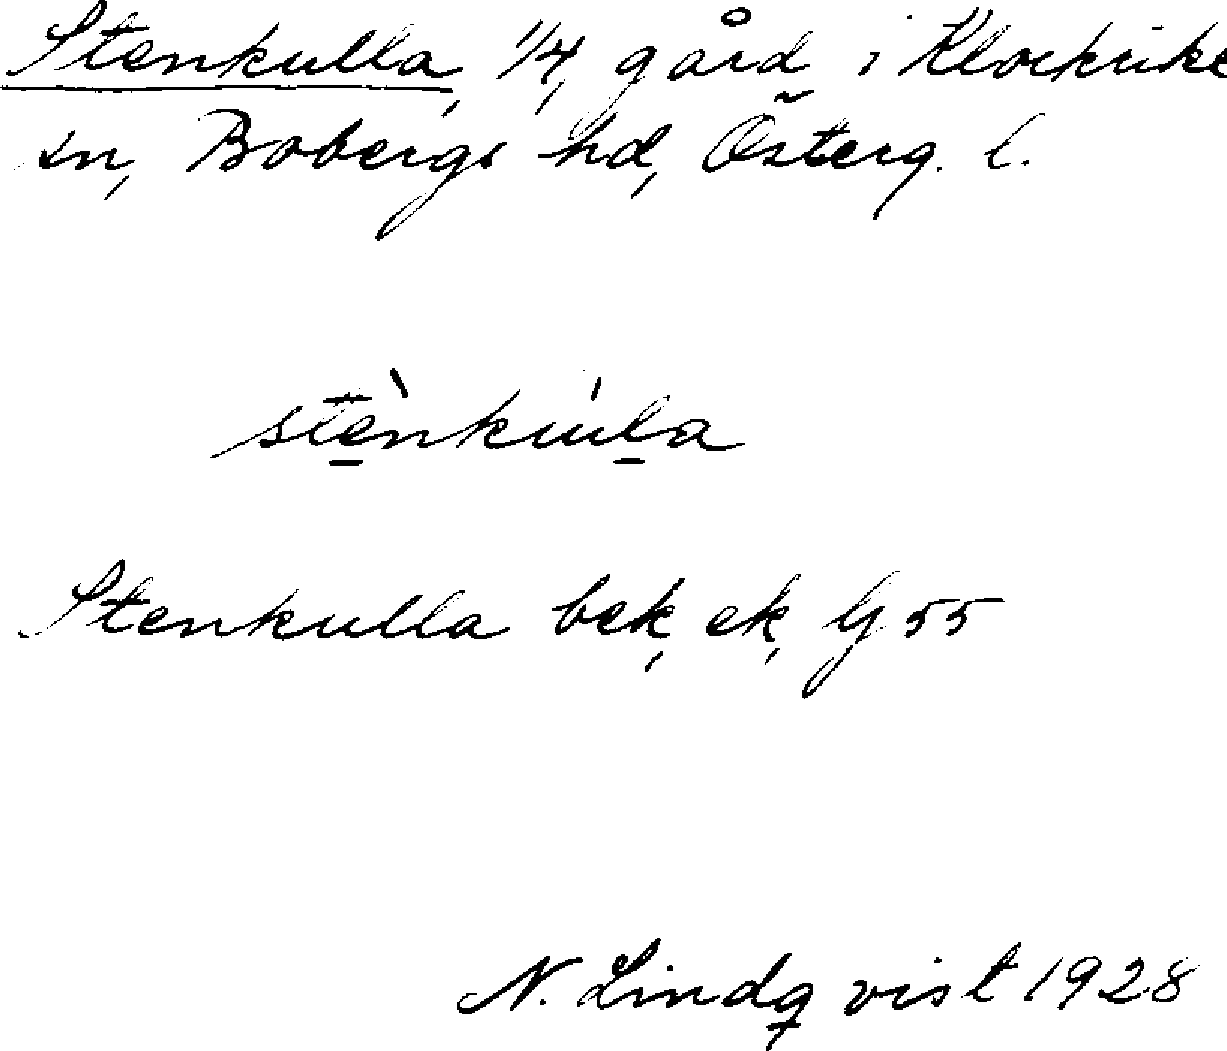 Stenkulla, 1/4, gård i Klockrike
sn, Bobergs hd, Österg. l.
stènkúla
Stenkulla bek, ek, G 55
N. Lindqvist 1928